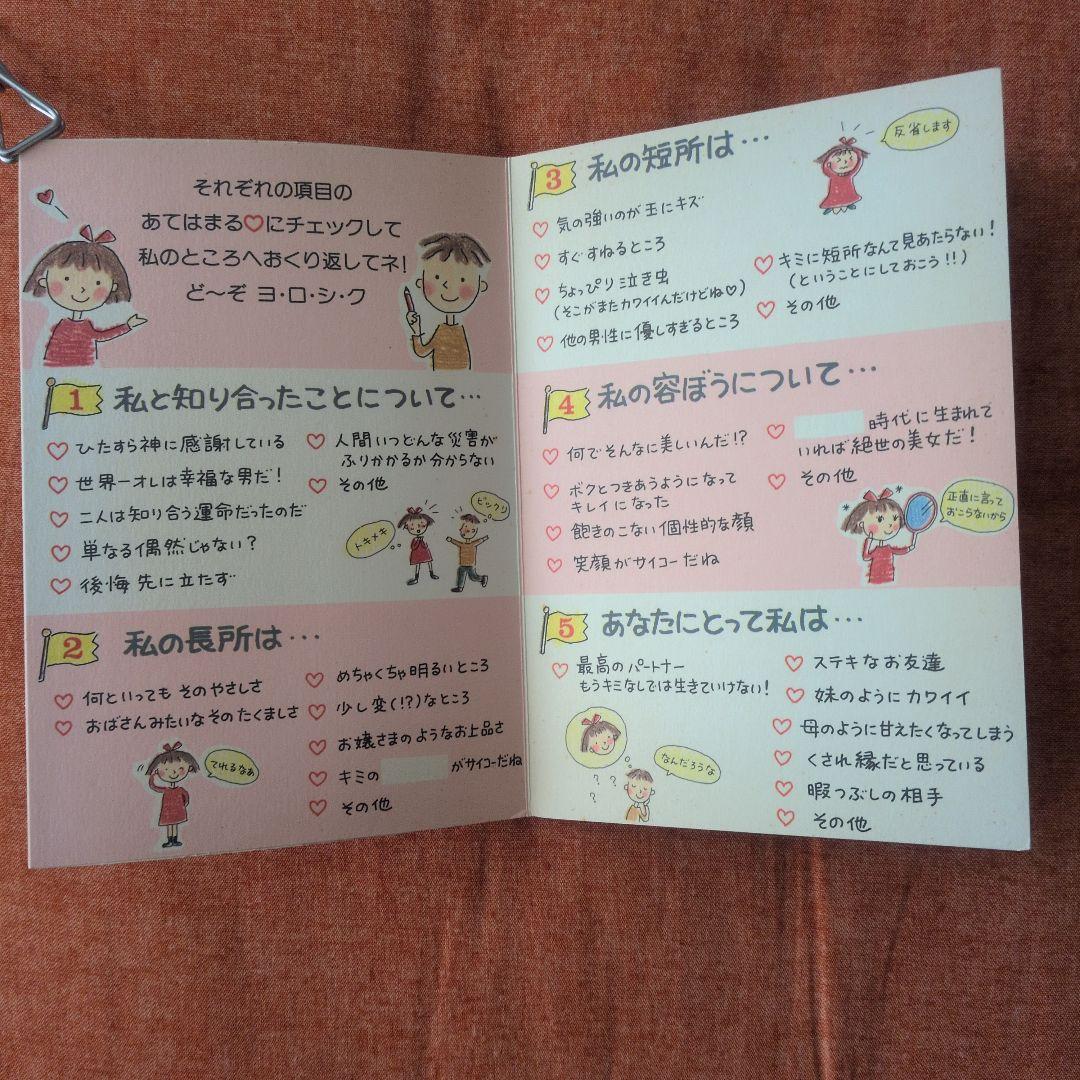 それぞれの項目の
あてはまる♡にチェックして
私のところへおくり返してネ!
ど〜ぞ ヨ・ロ・シ・ク
1 私と知り合ったことについて…
♡ ひたすら神に感謝している
♡ 世界一オレは幸福な男だ!
♡ 二人は知り合う運命だったのだ
♡ 単なる偶然じゃない?
♡ 後悔先に立たず
♡ 人間いつどんな災害が
ふりかかるか分からない
♡ その他
トキメキ
ビックリ
2 私の長所は…
♡ 何といっても そのやさしさ
♡ おばさんみたいなそのたくましさ
てれるなぁ
♡ めちゃくちゃ明るいところ
♡ 少し変(!?)なところ
♡ お嬢さまのようなお上品さ
♡ キミの がサイコーだね
♡ その他
3 私の短所は…
反省します
♡ 気の強いのが玉にキズ
♡ すぐすねるところ
♡ ちょっぴり泣き虫
(そこがまたカワイイんだけどね♡)
♡ 他の男性に優しすぎるところ
♡ キミに短所なんて見あたらない!
(ということにしておこう!!)
♡ その他
4 私の容ぼうについて…
♡ 何でそんなに美しいんだ!?
♡ ボクとつきあうようになって
キレイになった
♡ 飽きのこない個性的な顔
♡ 笑顔がサイコーだね
♡ 時代に生まれて
いれば絶世の美女だ!
♡ その他
正直に言って
おこらないから
5 あなたにとって私は…
♡ 最高のパートナー
もうキミなしでは生きていけない!
なんだろうな
? ? ?
♡ ステキなお友達
♡ 妹のようにカワイイ
♡ 母のように甘えたくなってしまう
♡ くされ縁だと思っている
♡ 暇つぶしの相手
♡ その他